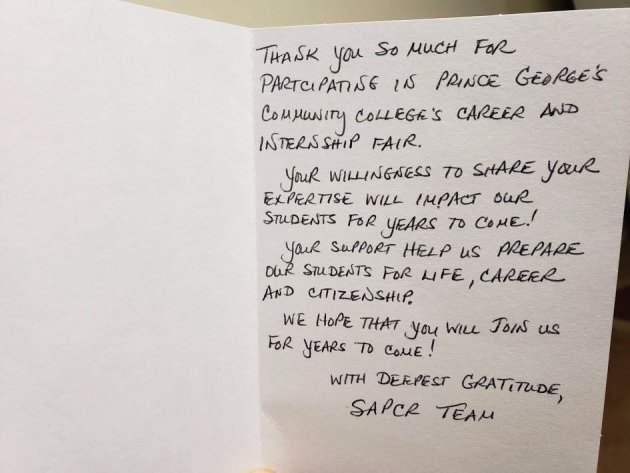 THANK you SO MUCH FOR
PARTCIPATING IN PRINCE GEORGE'S
COMMUNITY COLLEGE'S CAREER AND
INTERNSHIP FAIR.
YOUR WILLINGNESS TO SHARE YOUR
EXPERTISE WILL IMPACT OUR
STUDENTS FOR YEARS TO COME!
YOUR SUPPORT HELP US PREPARE
OUR STUDENTS FOR LIFE, CAREER
AND CITIZENSHIP.
WE HOPE THAT you WILL JOIN US
FOR YEARS TO COME!
WITH DEEPEST GRATITUDE,
SAPCR TEAM